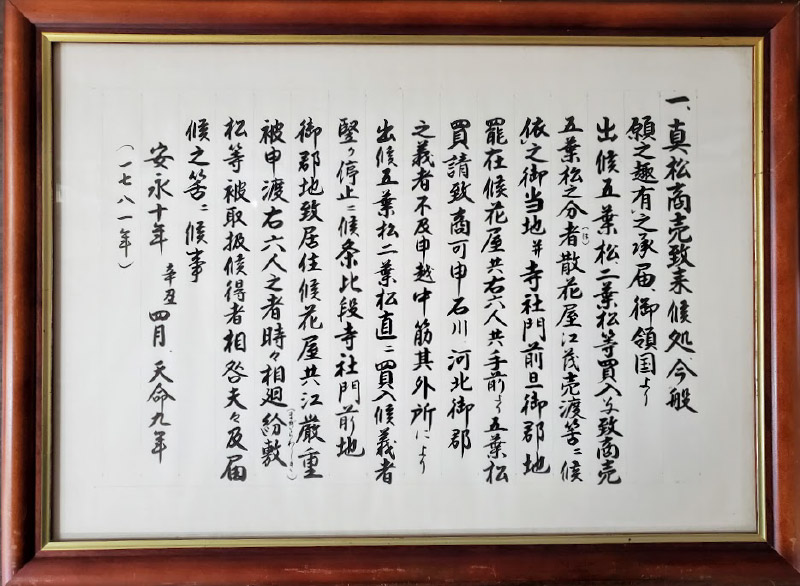 一、真松商売致来候処、今般
願之趣有之承届、御領国より
出候五葉松二葉松等買入ゟ致商売
五葉松之分者散花屋江茂売渡筈ニ候
(は)
依之御当地并寺社門前且御郡地
罷在候花屋共右六人共手前より五葉松
買請致商可申石川、河北御郡
之義者不及申越中筋其外所により
出候五葉松二葉松直ニ買入候義者
堅ク停止ニ候条比段寺社門前地
御郡地致居住候花屋共江厳重
被申渡右六人之者時々相廻紛敷
松等被取扱候得者相咎夫々及届
候之筈ニ候事
安永十年 辛丑 四月 天命九年
(一七八一年)